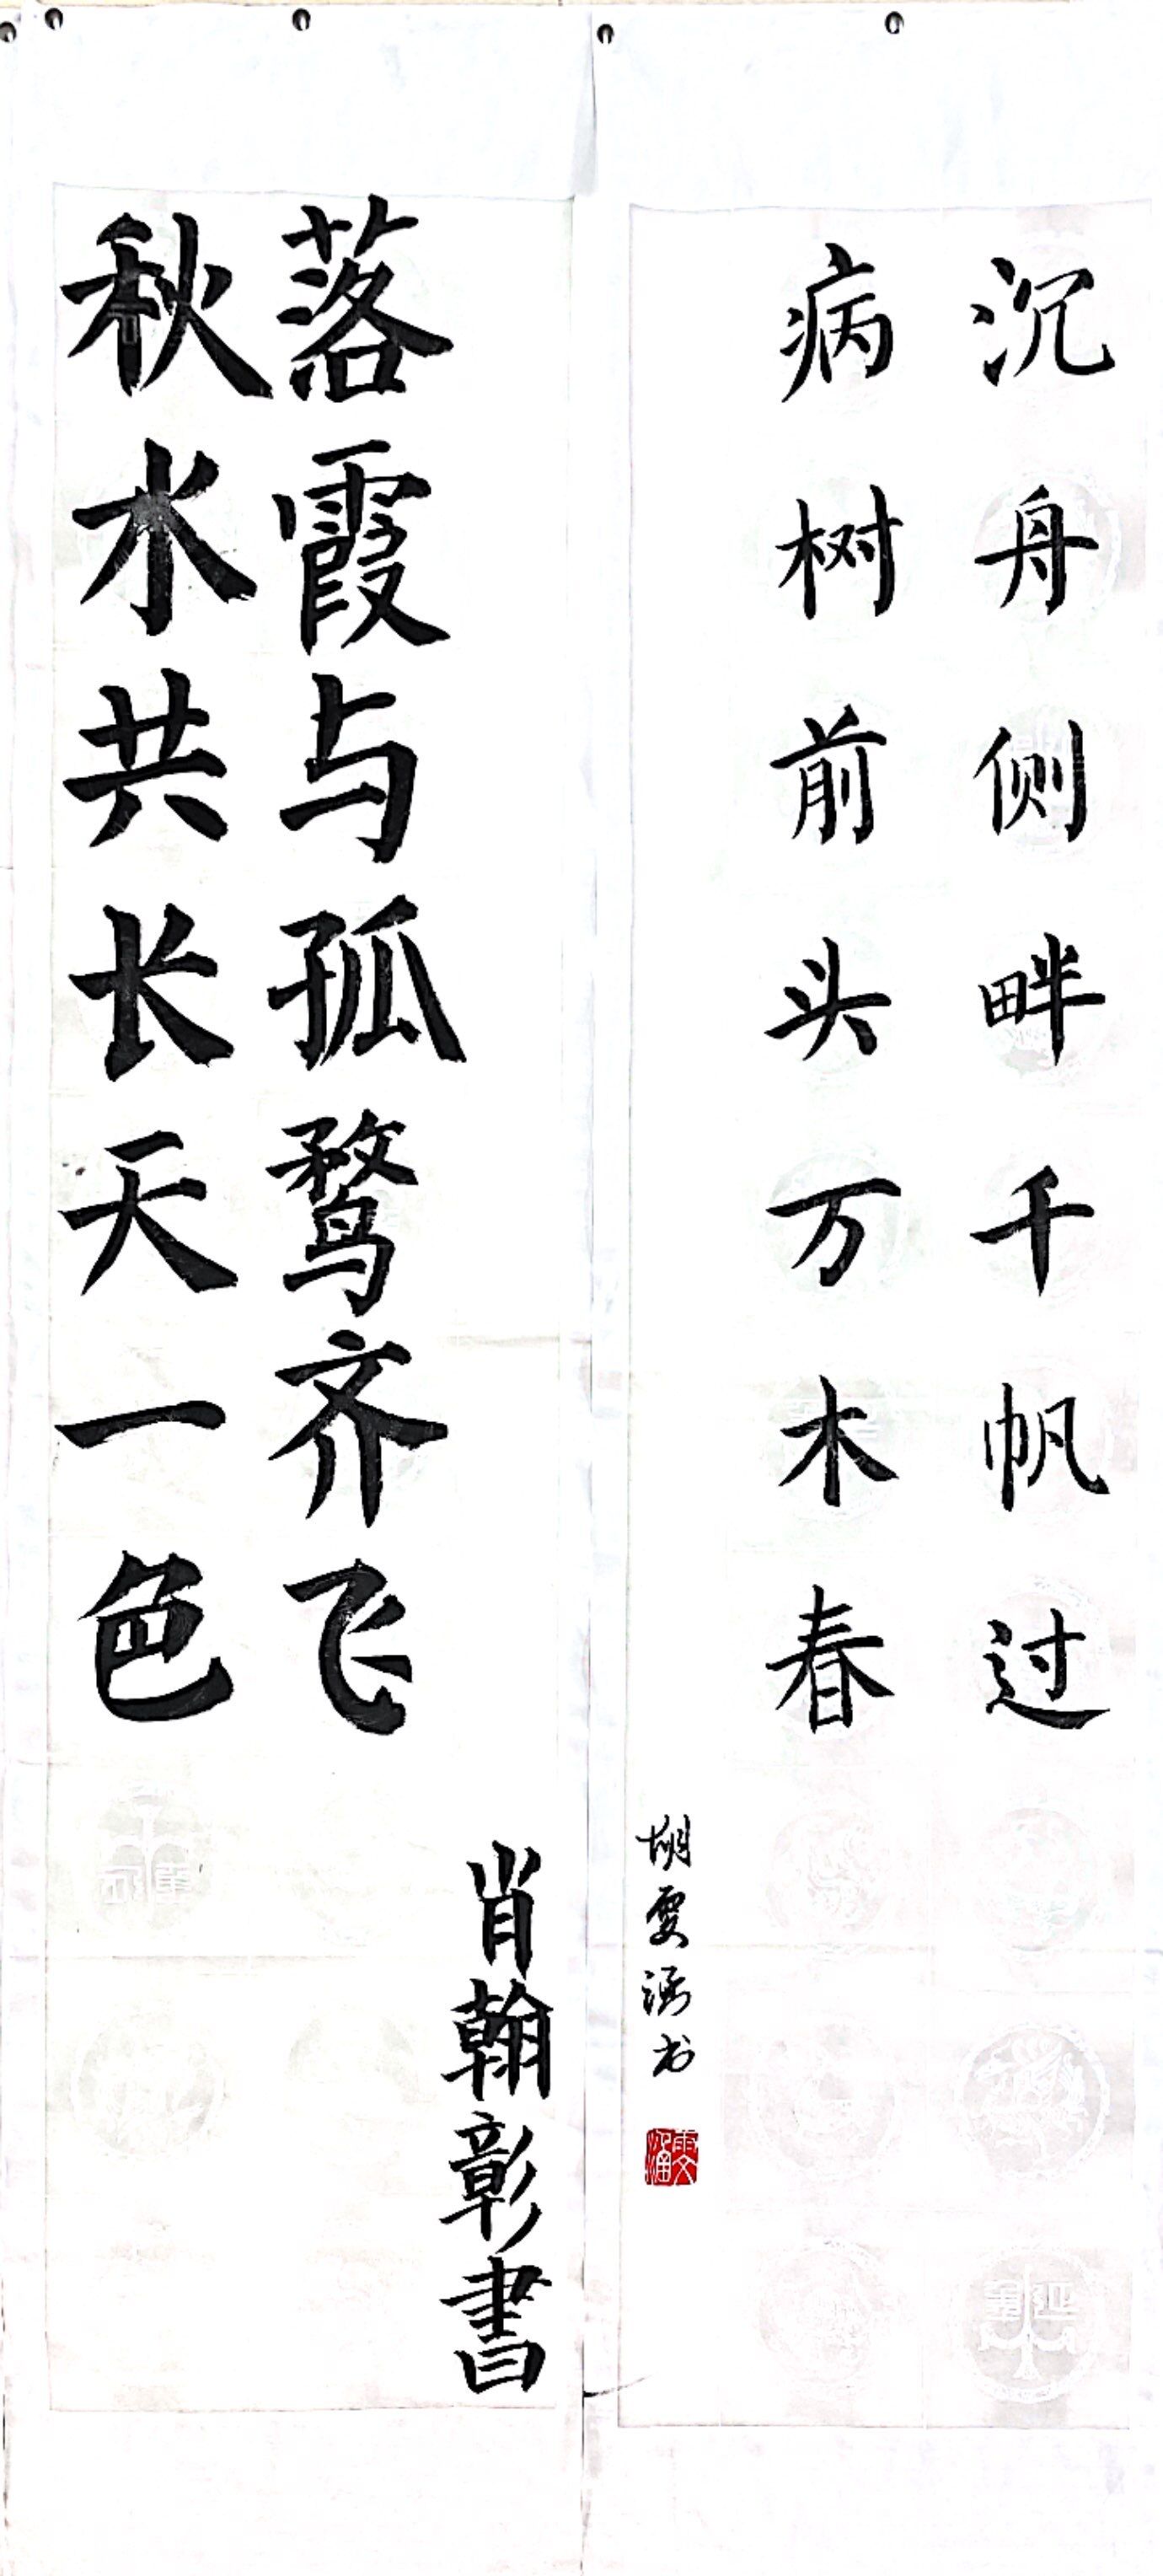 沉舟侧畔千帆过
病树前头万木春
胡雯涵书
雯涵
落霞与孤鹜齐飞
秋水共长天一色
肖翰彰書